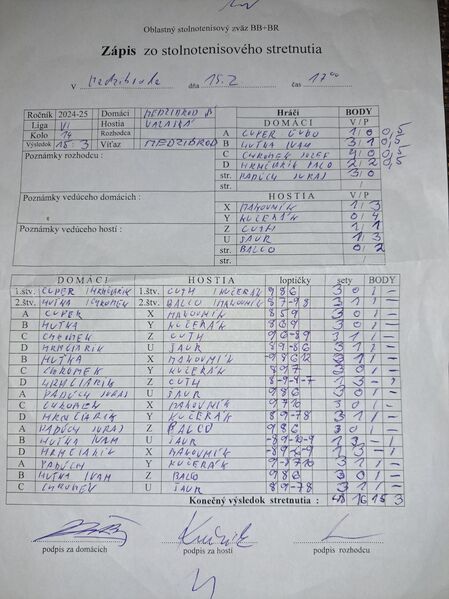 Oblastný stolnotenisový zväz BB+BR
Zápis zo stolnotenisového stretnutia
V Medzibrode dňa 15.2 čas 17 00
Ročník 2024-25 Domáci MEDZIBROD B
Liga VI Hostia VALASKÁ
Kolo 14 Rozhodca
Výsledok 15:3 Víťaz MEDZIBROD
Poznámky rozhodcu :
Poznámky vedúceho domácich :
Poznámky vedúceho hostí :
Hráči BODY
DOMÁCI V / P
A CUPER ĽUBO 1 0 0,5
B HUTKA IVAN 3 1 0,5
C CHROMEK JOZEF 4 0 0,5
D HRNČIARIK PALO 2 2 0,5
str. PADÚCH JURAJ 3 0
str.
HOSTIA V / P
X MAKOVNÍK 1 3
Y KUČERÁK 0 4
Z CUTH 1 1
U JAUR 1 3
str. BALCO 0 2
str.
DOMÁCI HOSTIA loptičky sety BODY
1.štv. CUPER HRNČIARIK 1.štv. CUTH KUČERÁK 9 8 6 3 0 1 -
2.štv. HUTKA CHROMEK 2.štv. BALCO MAKOVNÍK 3 1 1 -
A CUPER X MAKOVNÍK 8 5 9 3 0 1 -
B HUTKA Y KUČERÁK 3 0 1 -
C CHROMEK Z CUTH 3 1 1 -
D HRNČIARIK U JAUR 3 1 1 -
B HUTKA X MAKOVNÍK 3 1 1 -
C CHROMEK Y KUČERÁK 8 9 7 3 0 1 -
D HRNČIARIK Z CUTH 1 3 - 1
A PADÚCH JURAJ U JAUR 9 8 6 3 0 1 -
C CHROMEK X MAKOVNÍK 3 0 1 -
D HRNČIARIK Y KUČERÁK 3 1 1 -
A PADÚCH JURAJ Z BALCO 9 8 6 3 0 1 -
B HUTKA IVAN U JAUR 1 3 - 1
D HRNČIARIK X MAKOVNÍK 1 3 - 1
A PADÚCH Y KUČERÁK 3 1 1 -
B HUTKA IVAN Z BALCO 9 8 6 3 0 1 -
C CHROMEK U JAUR 3 1 1 -
Konečný výsledok stretnutia : 16 15 3
podpis za domácich podpis za hostí podpis rozhodcu